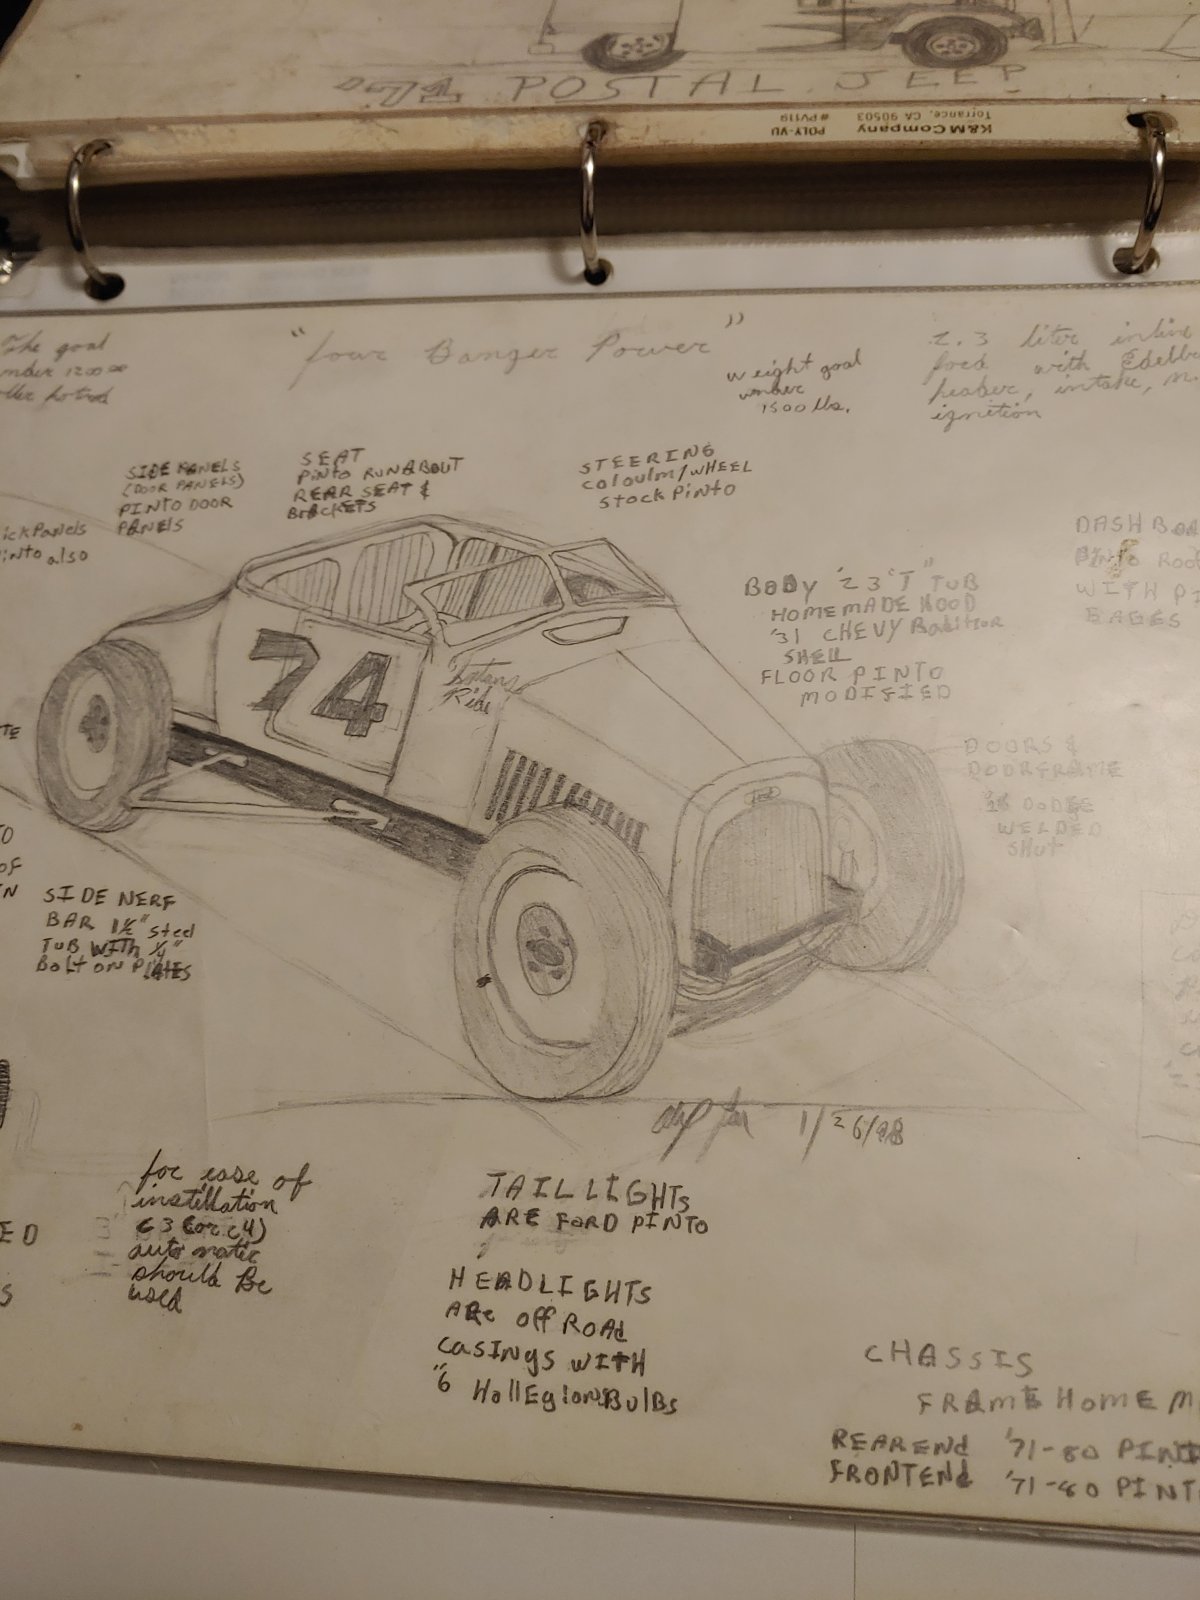 POSTAL JEEP
K&M Company
Torrance, CA 90503
POLY-VU
#PV119
The goal
under 1200 00
hotrod
"four Banger Power"
weight goal
under
1500 lbs.
2.3 liter inline
ford with Edelbr
header, intake,
ignition
SIDE PANELS
(DOOR PANELS)
PINTO DOOR
PANELS
ick Panels
into also
SEAT
PINTO RUNABOUT
REAR SEAT &
BRACKETS
STEERING
Coloulm/WHEEL
Stock Pinto
DASH BOA
PINTO
WITH PI
BODY '23 "T" TUB
HOMEMADE HOOD
'31 CHEVY
SHELL
FLOOR PINTO
MODIFIED
74
Ride
DOORS &
DOORFRAME
DODGE
WELDED
SHUT
TE
TO
OF
IN
SIDE NERF
BAR 1½" Steel
TUB WITH ¼"
Bolt on PLATES
1/26/98
for ease of
instillation
C3 (or C4)
automatic
should be
used
ED
S
TAILLIGHTS
ARE FORD PINTO
HEADLIGHTS
ARE OFF ROAD
CASINGS WITH
"6 HallEgionsBulBs
CHASSIS
FRAME HOME M
REAREND '71-80 PINT
FRONTEND '71-80 PINT